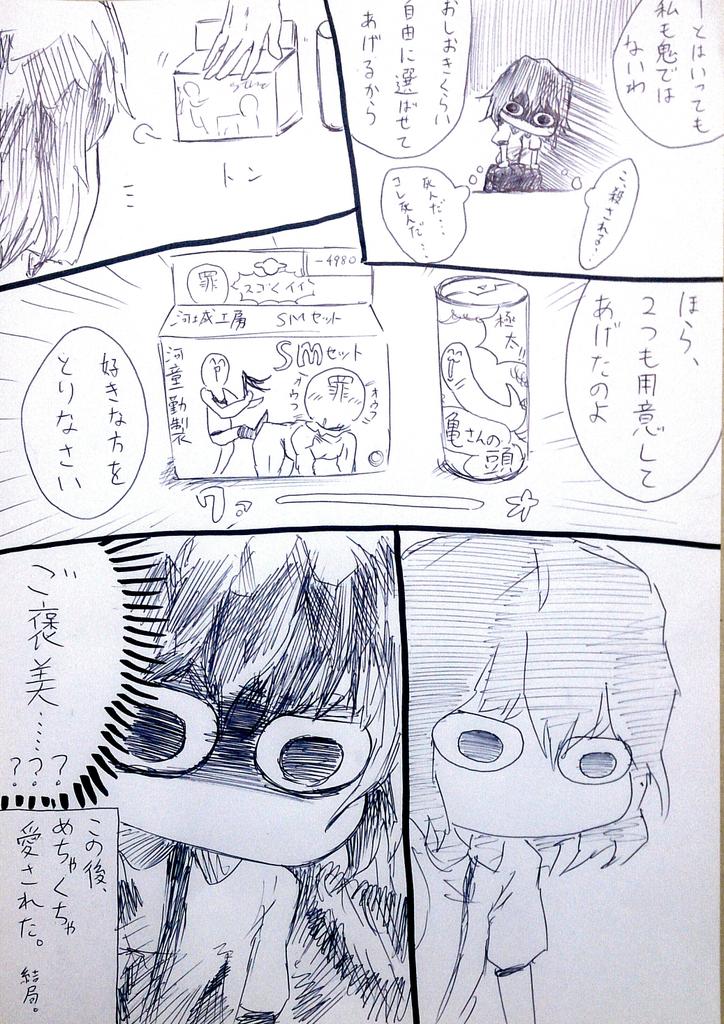 ーとはいっても
私も鬼では
ないわ
おしおきくらい
自由に選ばせて
あげるから
こ、殺される…
死んだ…
コレ死んだ…
トン
ほら、
2つも用意して
あげたのよ
極太!!
亀さんの
頭
-4980
罪
スゴくイイ
河城工房 SMセット
SMセット
河童勤製
罪
オウフ
オウフ
好きな方を
とりなさい
ご褒美……
???
この後、
めちゃくちゃ
愛された。
結局。